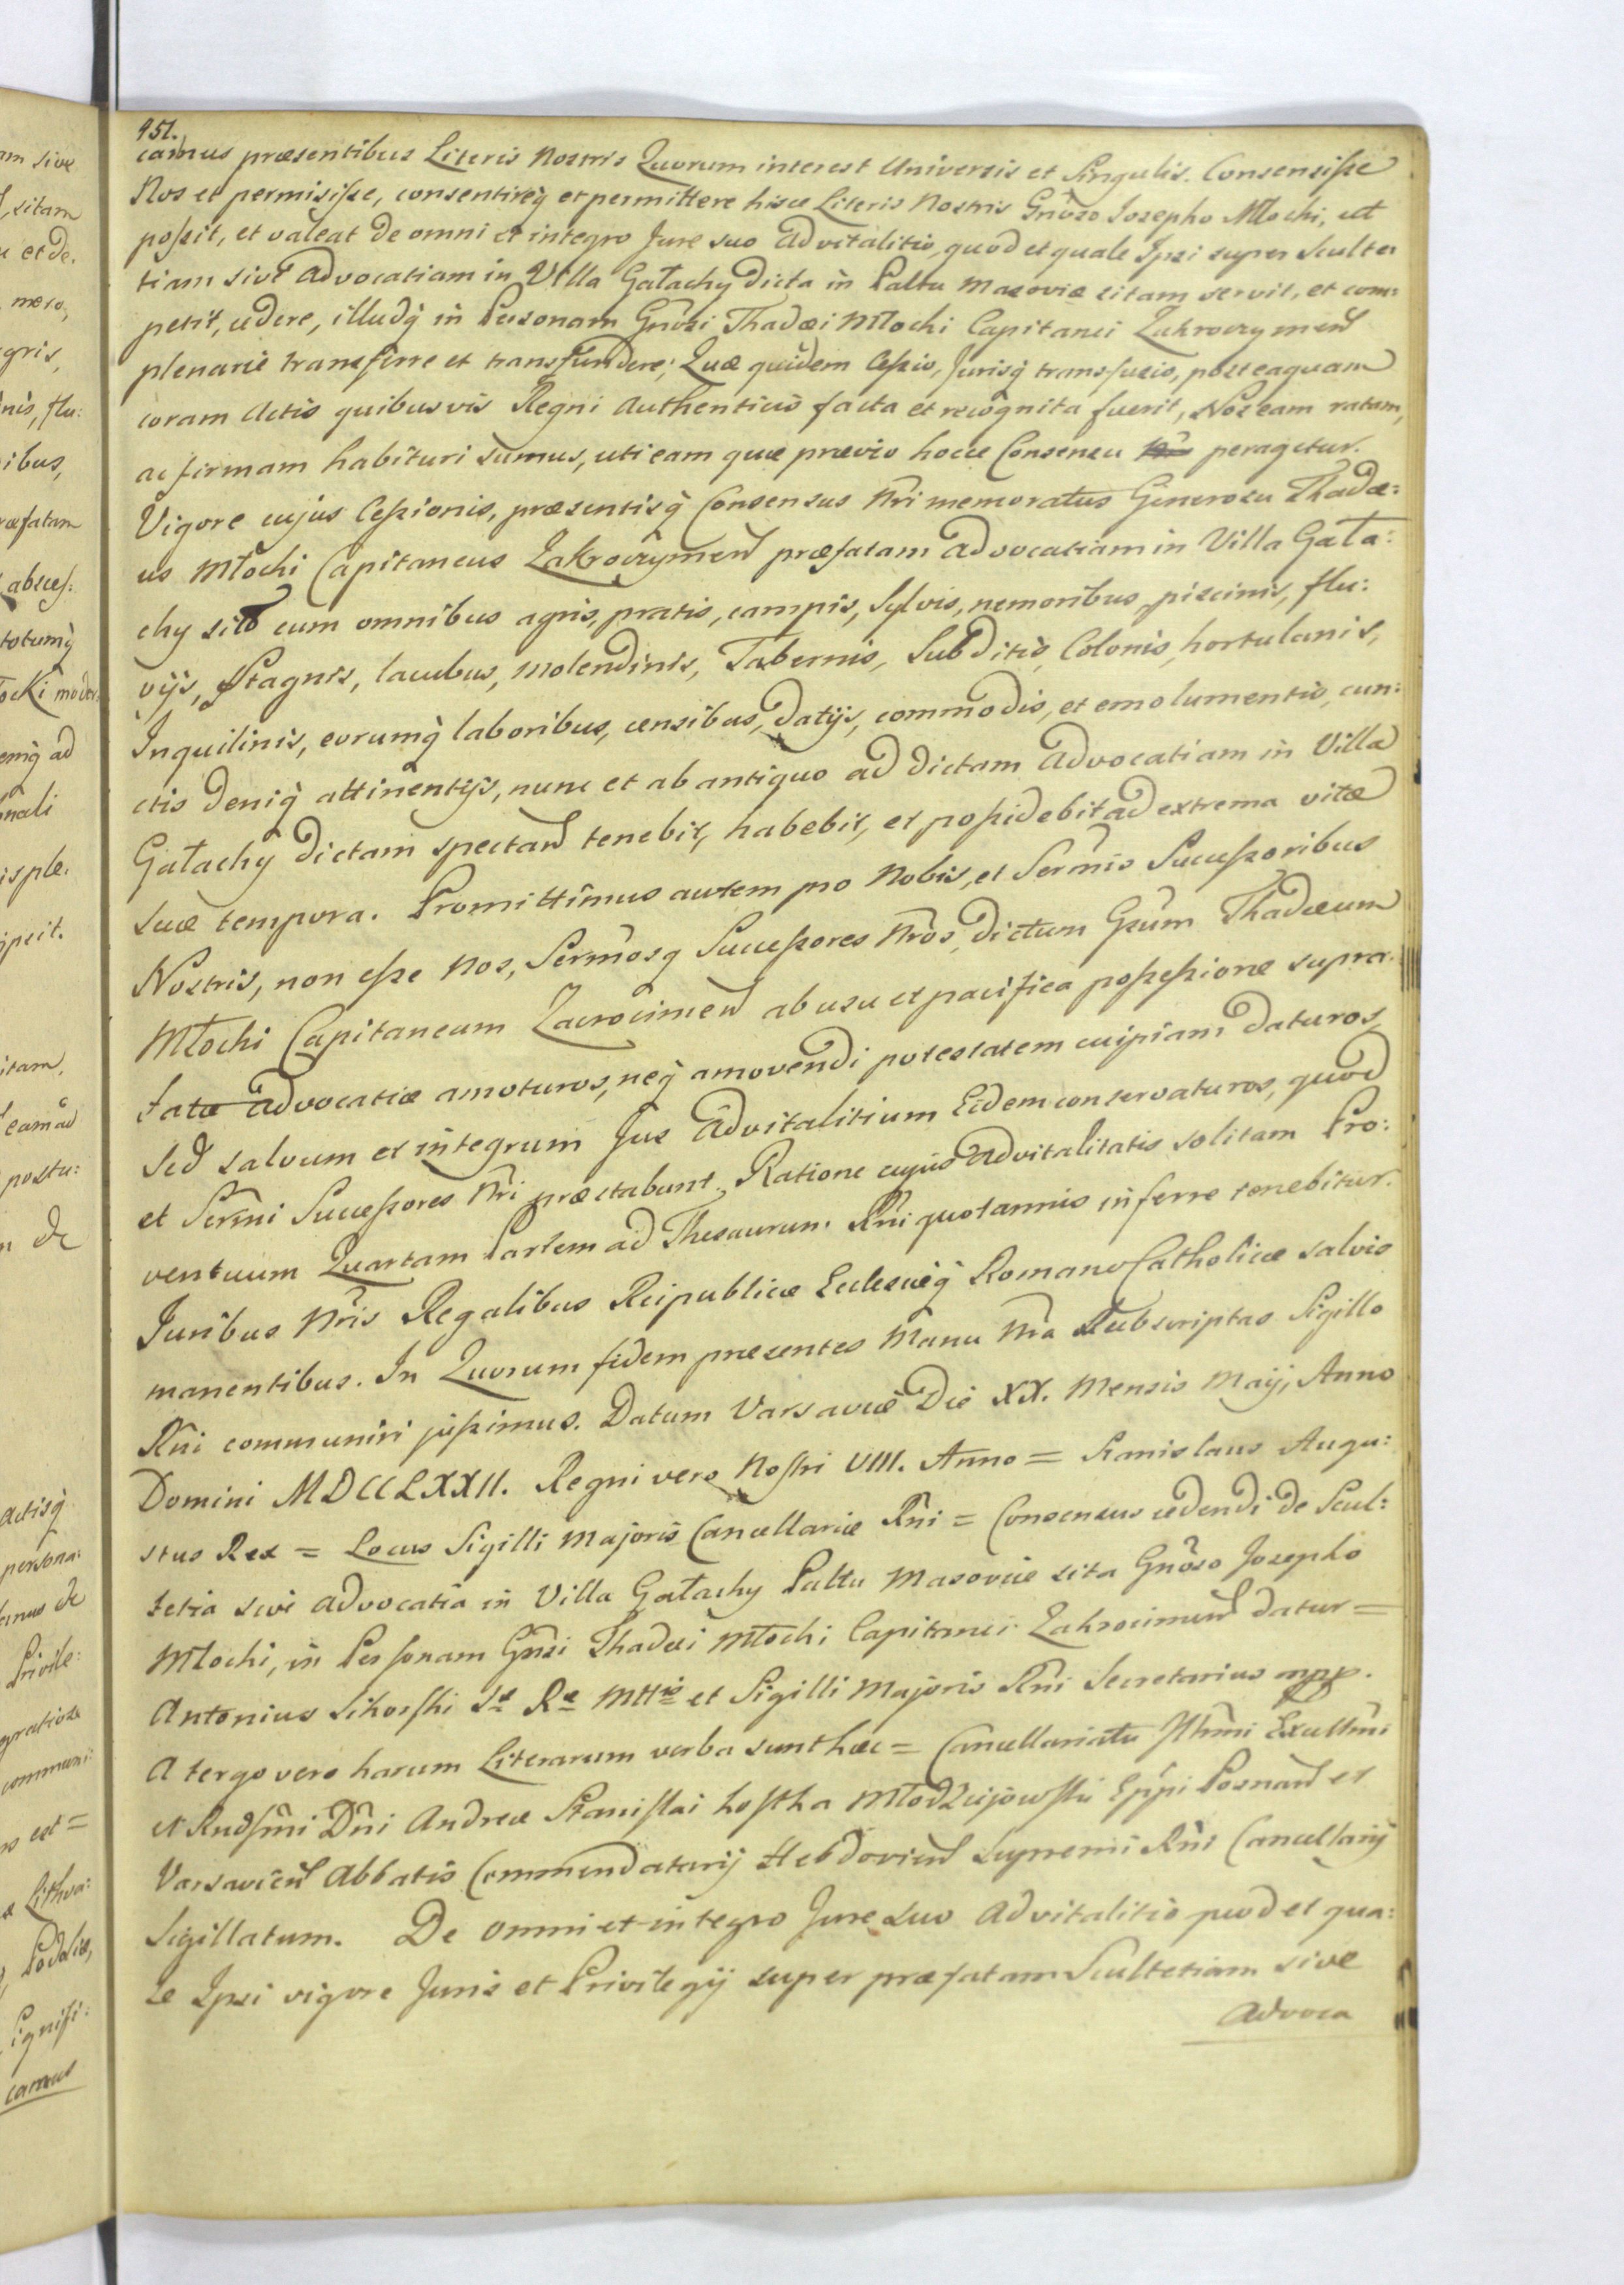 951.
camus præsentibus Literis Nostris Quorum interest Universis et Singulis. Consensiſse
Nos et permisiſse, consentireq̀ et permittere hisce Literis Nostris Gnõso Josepho Młocki, ut
poſsit, et valeat de omni et integro Jure suo Advitalitio, quod et quale Ipsi super Sculte
tiam sive Advocatiam in Villa Gałachy dicta in Paltu Masoviæ sitam servit, et com:
petit, cedere, illudq̀ in Personam Gnõsi Thadæi Młocki Capitanei Zakroczymeñ
plenarie transferre et transfundere; Quæ quidem Ceſsio, Jurisq̀ transfusio, posteaquam
coram Actis quibusvis Regni Authenticis facta et recognita fuerit, Nos eam ratam,
ac firmam habituri sumus, uti eam quæ prævio hocce Consensu peragetur.
Vigore cujus Ceſsionis, præsentisq̀ Consensus Nri memoratus Generosus Thadæ:
us Młocki Capitaneus Zakroczymeñ præfatam Advocatiam in Villa Gała:
chy sitã cum omnibus agris, pratis, campis, Sylvis, nemoribus, piscinis, flu:
vijs, Stagnis, lacubus, molendinis, Tabernis, Subditis, Colonis, hortulanis,
Inquilinis, eorumq̀ laboribus, censibus, datijs, commodis, et emolumentis, cun:
ctis deniq̀ attinentijs, nunc et ab antiquo ad dictam Advocatiam in Villa
Gałachy dictam spectañ tenebit, habebit, et poſsidebit ad extrema vitæ
suæ tempora. Promittimus autem pro Nobis, et Serm̃is Succeſsoribus
Nostris, non eſse Nos, Serm̃osq Succeſsores Nr̃os, dictum Gsũm Thadæum
Młocki Capitaneum Zacrocimeñ ab usu et pacifica poſseſsione supra:
fatæ Advocatiæ amoturos, neq̀ amovendi potestatem cuipiam daturos,
sed salvum et integrum Jus Advitalitium Eidem conservaturos, quod
et Serm̃i Succeſsores Nr̃i præstabunt. Ratione cujus Advitalitatis solitam Pro:
ventuum Quartam Partem ad Thesaurum Rñi quotannis inferre tenebitur.
Juribus Nr̃is Regalibus Reipublicæ Eclesiæq̀ Romano Catholicæ salvis
manentibus. In Quorum fidem præsentes Manu Nr̃a Subscriptas Sigillo
Rñi communiri juſsimus. Datum Varsaviæ Die XX. Mensis Maij, Anno
Domini MDCCLXXII. Regni vero Nostri VIII. Anno = Stanislaus Augu:
stus Rex = Locus Sigilli Majoris Cancellariæ Rñi = Consensus cedendi de Scul:
tetia sive Advocatia in Villa Gałachy Paltu Masoviæ sita Gnõso Josepho
Młocki, in Personam Gnsi Thadæi Młocki Capitanei Zakrocimeñ datur =
Antonius Sikorski Sæ Ræ Mttis et Sigilli Majoris Rñi Secretarius mpp.
A tergo vero harum Literarum verba sunt hæc = Cancellariatu Illm̃i Excellm̃i
et Rndſm̃i Dñi Andreæ Stanislai Kostka Młodziejowski Epp̃i Posnañ et
Varsavieñ Abbatis Commendatarij Hebdovieñ Supremi Rñi Cancellarij
Sigillatum. De omni et integro Jure suo Advitalitio quod et qua:
le Ipsi vigore Juris et Privilegij super præfatam Scultetiam sive
Advoca